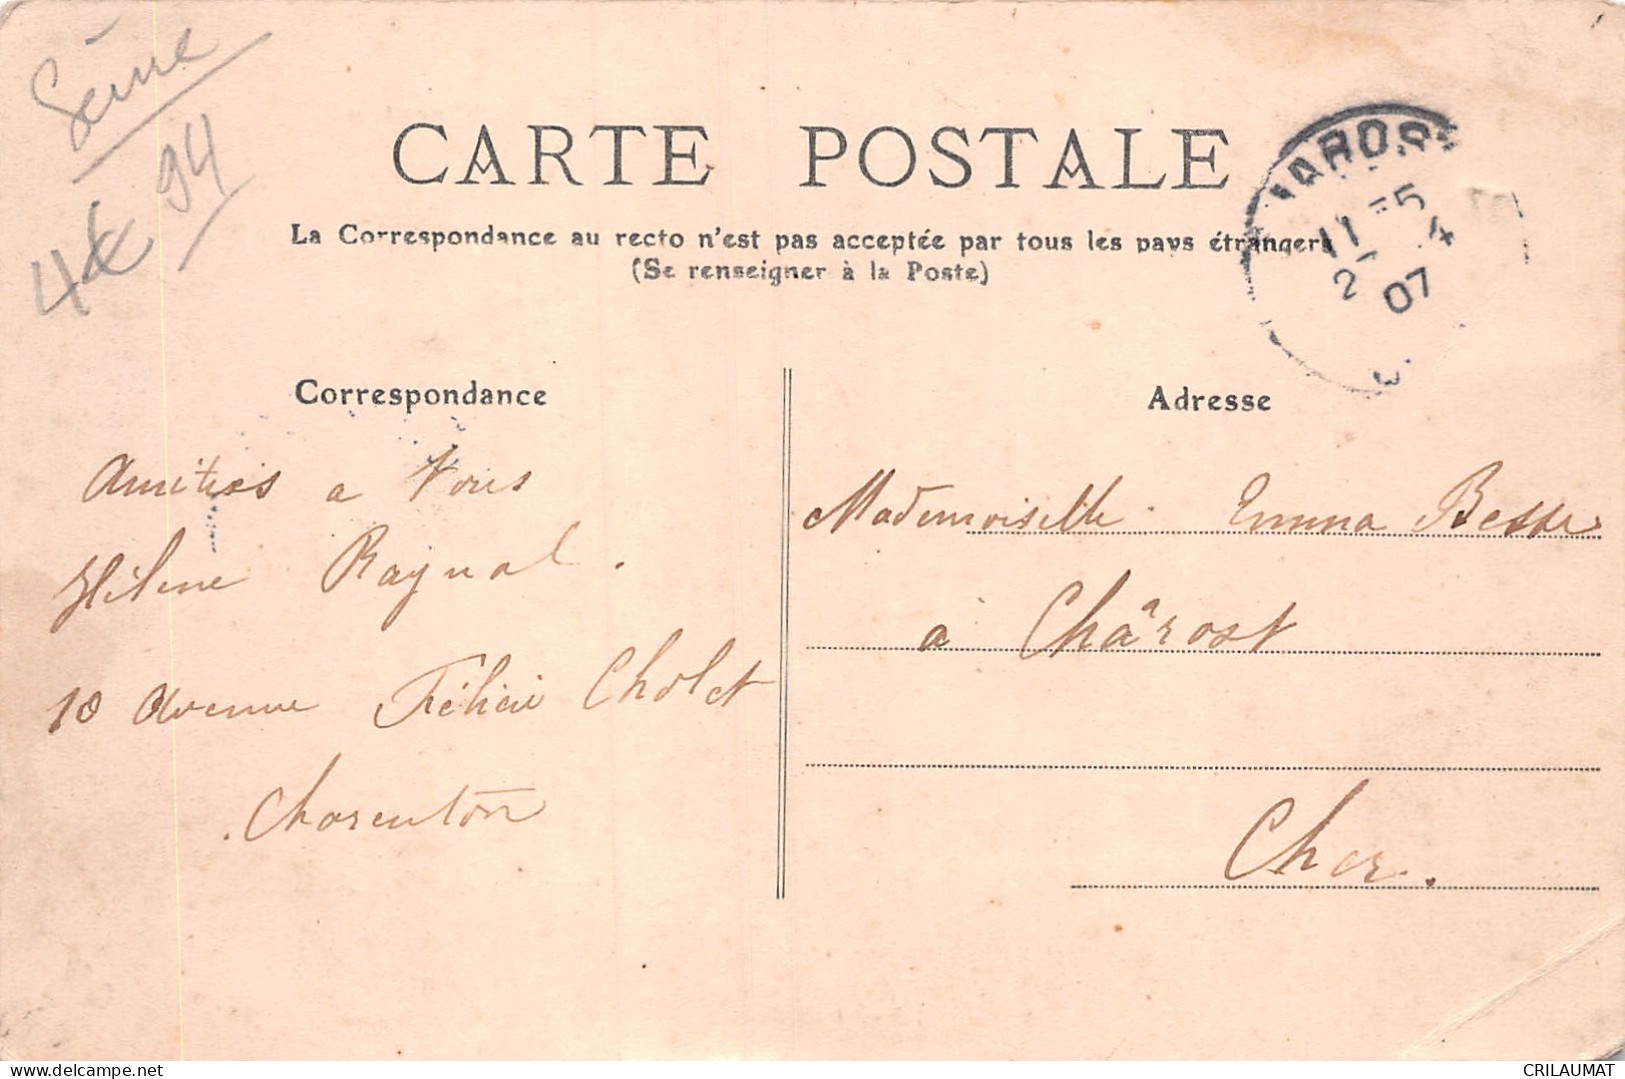 Seine
94
4€
CARTE POSTALE
La Correspondance au recto n'est pas acceptée par tous les pays étrangers
(Se renseigner à la Poste)
HAROST
11 - 5
2 - 4
07
Correspondance
Adresse
Amitiés a Vous
Hélène Raynal.
10 Avenue Félicie Cholet
Charenton
Mademoiselle Emma Besse
à Chârost
Cher.
www.delcampe.net
CRILAUMAT